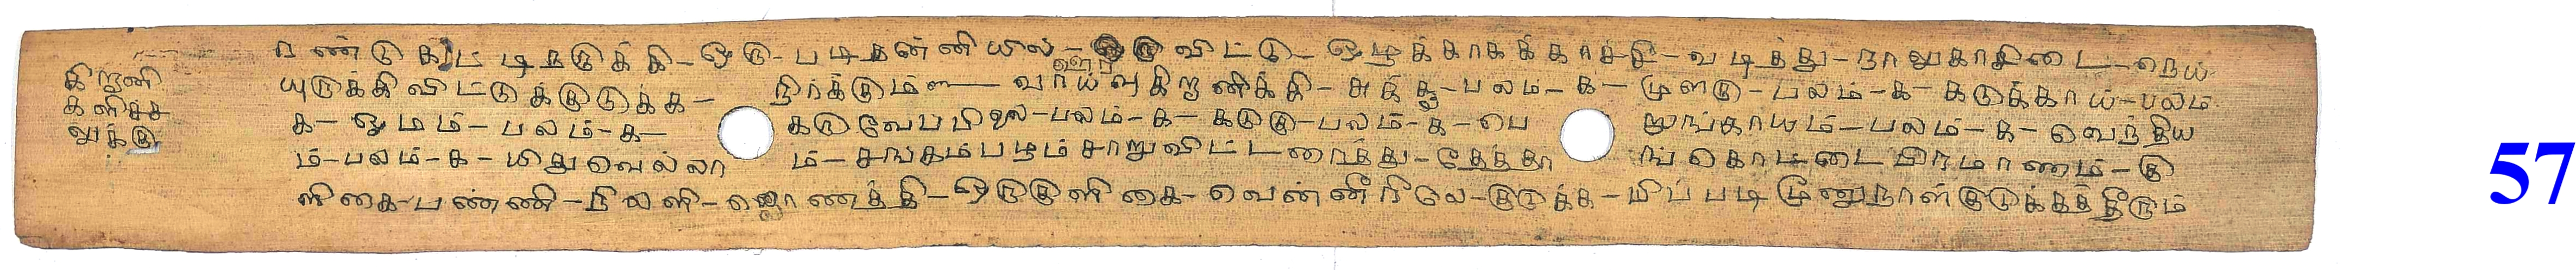 கிறணி
களிச்ச
லுக்கு
ண்டு கட்டி நறுக்கி - ஒரு - படி தண்ணியில் - விட்டு - ஒழக்காகக்காச்சி - வடித்து - நாலுகாசிடை - நெய்
யுருக்கி விட்டுக்குடுக்க - நிர்க்கும் - வாய்வு கிறணிக்கி - சுக்கு - பலம் - க - மிளகு - பலம் - க - கடுக்காய் - பலம்
க - ஓமம் - பலம் - க - கருவேப்பிலை - பலம் - க - கடுகு - பலம் - க - பெ றுங்காயம் - பலம் - க - வெந்திய
ம் - பலம் - க - யிதுவெல்லா ம் - சங்கம்பழம் சாறுவிட்டரைத்து - தேத்தா ங் கொட்டை பிறமாணம் - கு
ளிகை - பண்ணி - ஒரு குளிகை - வென்னீரிலே - குடுக்க - யிப்படி மூனுநாள் குடுக்கத்தீரும்
57